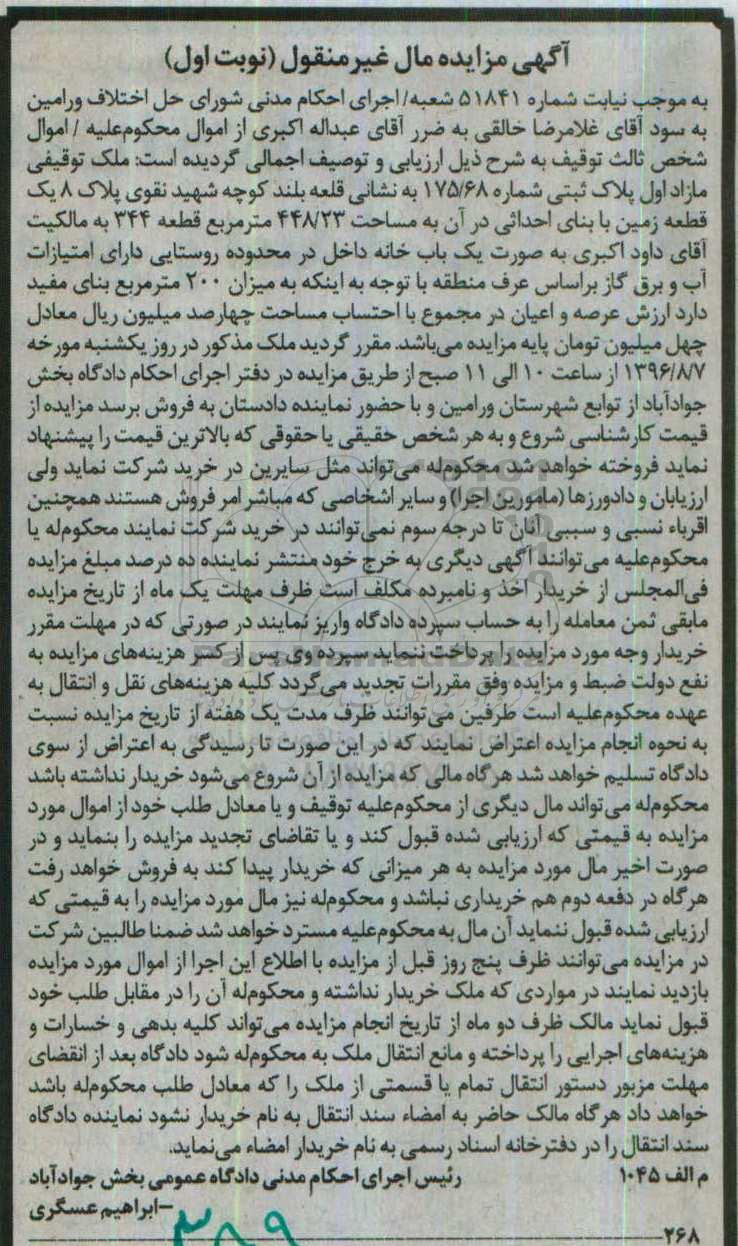 آگهی مزایده مال غیرمنقول (نوبت اول)
به موجب نیابت شماره ۵۱۸۴۱ شعبه/ اجرای احکام مدنی شورای حل اختلاف ورامین
به سود آقای غلامرضا خالقی به ضرر آقای عبداله اکبری از اموال محکوم‌علیه / اموال
شخص ثالث توقیف به شرح ذیل ارزیابی و توصیف اجمالی گردیده است: ملک توقیفی
مازاد اول پلاک ثبتی شماره ۱۷۵/۶۸ به نشانی قلعه بلند کوچه شهید نقوی پلاک ۸ یک
قطعه زمین با بنای احداثی در آن به مساحت ۴۴۸/۲۳ مترمربع قطعه ۳۴۴ به مالکیت
آقای داود اکبری به صورت یک باب خانه داخل در محدوده روستایی دارای امتیازات
آب و برق گاز براساس عرف منطقه با توجه به اینکه به میزان ۲۰۰ مترمربع بنای مفید
دارد ارزش عرصه و اعیان در مجموع با احتساب مساحت چهارصد میلیون ریال معادل
چهل میلیون تومان پایه مزایده می‌باشد. مقرر گردید ملک مذکور در روز یکشنبه مورخه
۱۳۹۶/۸/۷ از ساعت ۱۰ الی ۱۱ صبح از طریق مزایده در دفتر اجرای احکام دادگاه بخش
جوادآباد از توابع شهرستان ورامین و با حضور نماینده دادستان به فروش برسد مزایده از
قیمت کارشناسی شروع و به هر شخص حقیقی یا حقوقی که بالاترین قیمت را پیشنهاد
نماید فروخته خواهد شد محکوم‌له می‌تواند مثل سایرین در خرید شرکت نماید ولی
ارزیابان و دادورزها (مامورین اجرا) و سایر اشخاصی که مباشر امر فروش هستند همچنین
اقرباء نسبی و سببی آنان تا درجه سوم نمی‌توانند در خرید شرکت نمایند محکوم‌له یا
محکوم‌علیه می‌توانند آگهی دیگری به خرج خود منتشر نماینده ده درصد مبلغ مزایده
فی‌المجلس از خریدار اخذ و نامبرده مکلف است ظرف مهلت یک ماه از تاریخ مزایده
مابقی ثمن معامله را به حساب سپرده دادگاه واریز نمایند در صورتی که در مهلت مقرر
خریدار وجه مورد مزایده را پرداخت ننماید سپرده وی پس از کسر هزینه‌های مزایده به
نفع دولت ضبط و مزایده وفق مقررات تجدید می‌گردد کلیه هزینه‌های نقل و انتقال به
عهده محکوم‌علیه است طرفین می‌توانند ظرف مدت یک هفته از تاریخ مزایده نسبت
به نحوه انجام مزایده اعتراض نمایند که در این صورت تا رسیدگی به اعتراض از سوی
دادگاه تسلیم خواهد شد هرگاه مالی که مزایده از آن شروع می‌شود خریدار نداشته باشد
محکوم‌له می‌تواند مال دیگری از محکوم‌علیه توقیف و یا معادل طلب خود از اموال مورد
مزایده به قیمتی که ارزیابی شده قبول کند و یا تقاضای تجدید مزایده را بنماید و در
صورت اخیر مال مورد مزایده به هر میزانی که خریدار پیدا کند به فروش خواهد رفت
هرگاه در دفعه دوم هم خریداری نباشد و محکوم‌له نیز مال مورد مزایده را به قیمتی که
ارزیابی شده قبول ننماید آن مال به محکوم‌علیه مسترد خواهد شد ضمنا طالبین شرکت
در مزایده می‌توانند ظرف پنج روز قبل از مزایده با اطلاع این اجرا از اموال مورد مزایده
بازدید نمایند در مواردی که ملک خریدار نداشته و محکوم‌له آن را در مقابل طلب خود
قبول نماید مالک ظرف دو ماه از تاریخ انجام مزایده می‌تواند کلیه بدهی و خسارات و
هزینه‌های اجرایی را پرداخته و مانع انتقال ملک به محکوم‌له شود دادگاه بعد از انقضای
مهلت مزبور دستور انتقال تمام یا قسمتی از ملک را که معادل طلب محکوم‌له باشد
خواهد داد هرگاه مالک حاضر به امضاء سند انتقال به نام خریدار نشود نماینده دادگاه
سند انتقال را در دفترخانه اسناد رسمی به نام خریدار امضاء می‌نماید.
م الف ۱۰۴۵ رئیس اجرای احکام مدنی دادگاه عمومی بخش جوادآباد
-ابراهیم عسگری
۲۶۸